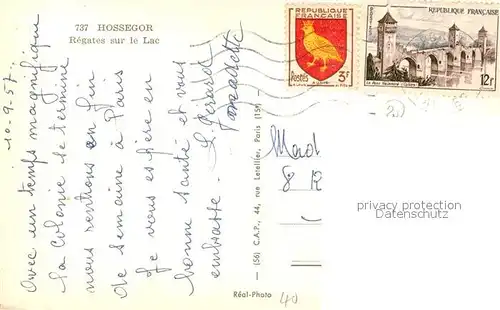 737 HOSSEGOR
Régates sur le Lac
10-9-57
Avec un temps magnifique
la Colonie se termine
nous rentrons en fin
de semaine à Paris
Je vous espère en
bonne santé et vous
embrasse.
RÉPUBLIQUE
FRANÇAISE
Postes
3F
RÉPUBLIQUE FRANÇAISE
12F
Mad
8 R
(56) C.A.P., 44, rue Letellier, Paris (15e)
Réal-Photo
40
privacy protection
Datenschutz